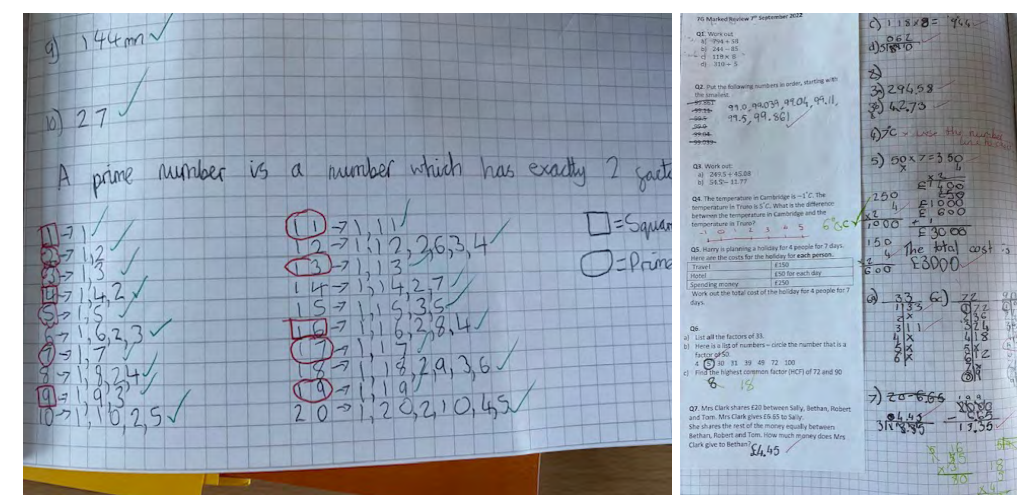 a) 144mm
b) 27
A prime number is a number which has exactly 2 facto
1→1
2→1,2
3→1,3
4→1,4,2
5→1,5
6→1,6,2,3
7→1,7
8→1,8,2,4
9→1,9,3
10→1,10,2,5
11→1,11
12→1,12,2,6,3,4
13→1,13
14→1,14,2,7
15→1,15,3,5
16→1,16,2,8,4
17→1,17
18→1,18,2,9,3,6
19→1,19
20→1,20,2,10,4,5
□=Squar
○=Prime
7G Marked Review 7th September 2022
Q1. Work out
a) 794 + 58
b) 244 – 85
c) 118 × 8
d) 310 ÷ 5
Q2. Put the following numbers in order, starting with
the smallest.
99.861
99.11
99.5
99.0
99.04
99.039
99.0, 99.039, 99.04, 99.11,
99.5, 99.861
Q3. Work out:
a) 249.5 + 45.08
b) 54.5 – 11.77
Q4. The temperature in Cambridge is –1°C. The
temperature in Truro is 5°C. What is the difference
between the temperature in Cambridge and the
temperature in Truro?
6°C
-1 0 1 2 3 4 5
Q5. Harry is planning a holiday for 4 people for 7 days.
Here are the costs for the holiday for each person.
Travel £150
Hotel £50 for each day
Spending money £250
Work out the total cost of the holiday for 4 people for 7
days.
Q6.
a) List all the factors of 33.
b) Here is a list of numbers – circle the number that is a
factor of 50
4 5 30 31 39 49 72 100
c) Find the highest common factor (HCF) of 72 and 90
8 18
Q7. Mrs Clark shares £20 between Sally, Bethan, Robert
and Tom. Mrs Clark gives £6.65 to Sally.
She shares the rest of the money equally between
Bethan, Robert and Tom. How much money does Mrs
Clark give to Bethan?
£4.45
c) 118×8= 944
d)
3a) 294.58
3b) 42.73
4) 7C
use the number
5) 50×7=350
250
1000
£1000
£600
£3000
150
600
The total cost is
£3000
6a) 33
6c) 72
7) 20-6.65
13.35